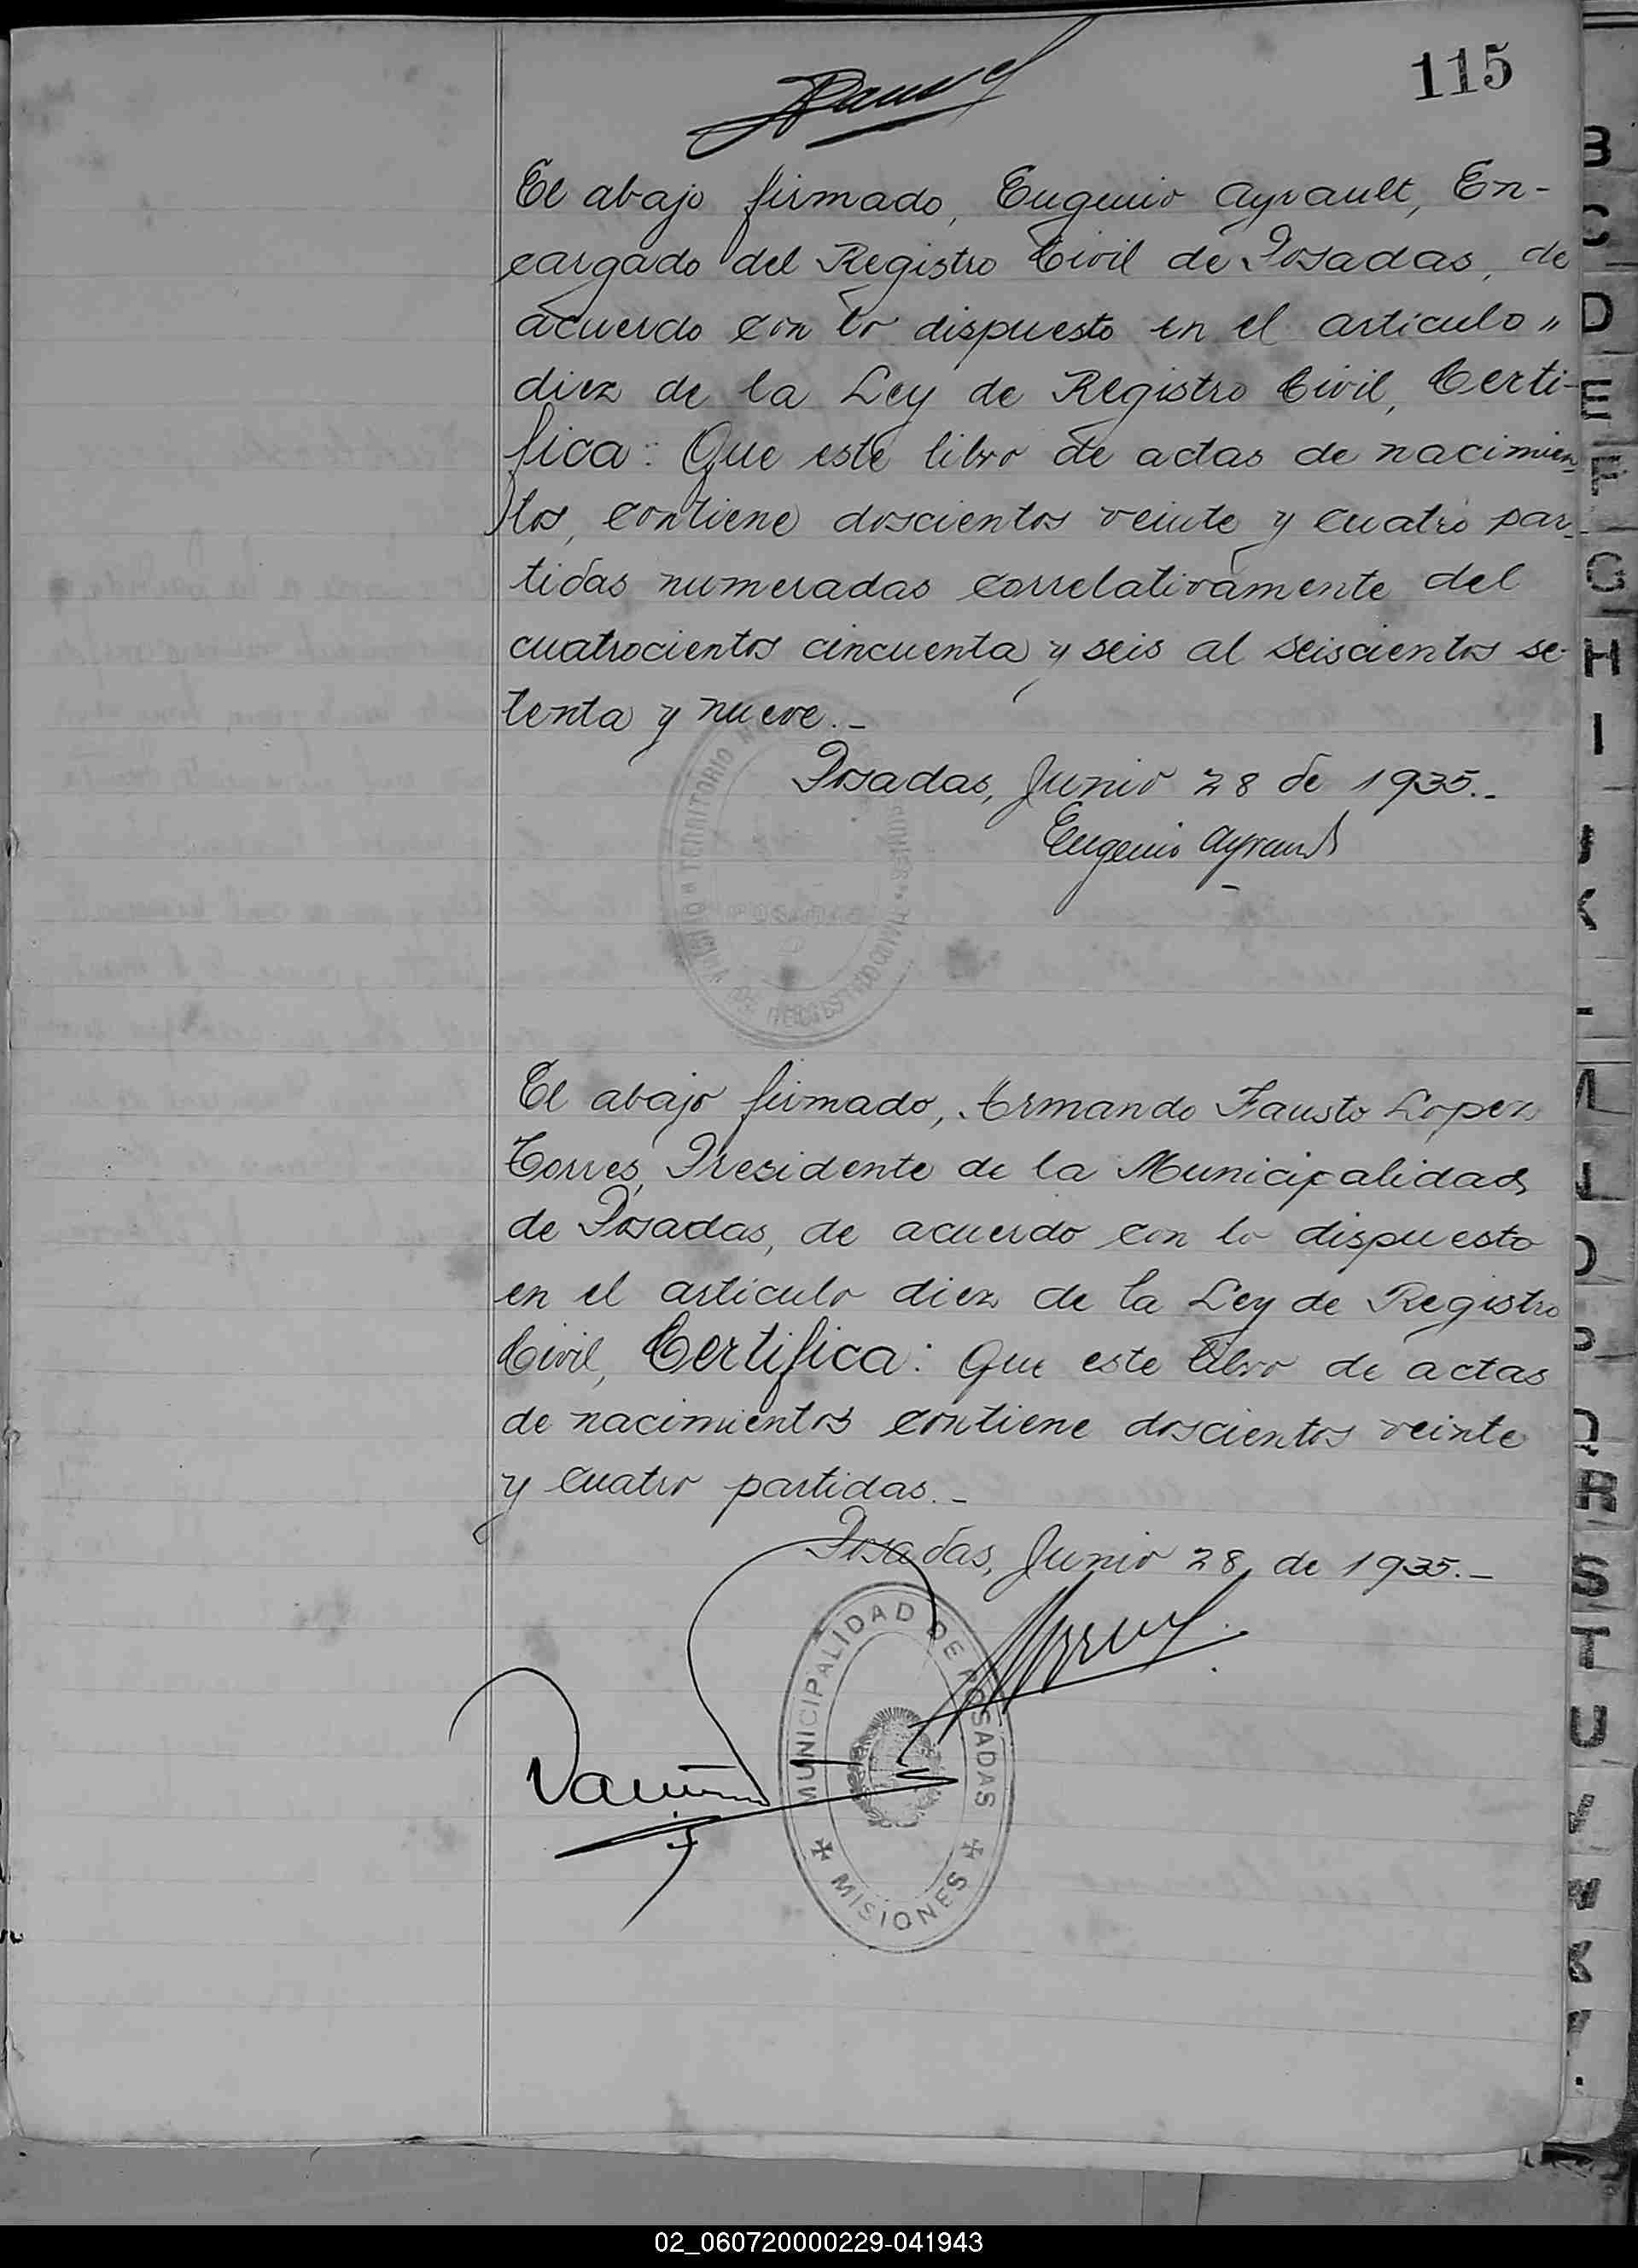 115
El abajo firmado, Eugenio Ayrault, En-
cargado del Registro Civil de Posadas, de
acuerdo con lo dispuesto en el articulo "
diez de la Ley de Registro Civil, Certi-
fica: Que este libro de actas de nacimien-
tos, contiene doscientos veinte y cuatro par-
tidas numeradas correlativamente del
cuatrocientos cincuenta y seis al seiscientos se-
tenta y nueve.-
Posadas, Junio 28 de 1935.-
Eugenio Ayrault
TERRITORIO
POSADAS
El abajo firmado, Armando Fausto Lopez
Torres, Presidente de la Municipalidad
de Posadas, de acuerdo con lo dispuesto
en el articulo diez de la Ley de Registro
Civil, Certifica: Que este libro de actas
de nacimientos contiene doscientos veinte
y cuatro partidas.-
Posadas, Junio 28 de 1935.-
MUNICIPALIDAD DE POSADAS
MISIONES
B
C
D
E
F
G
H
I
K
O
R
S
T
U
02_060720000229-041943